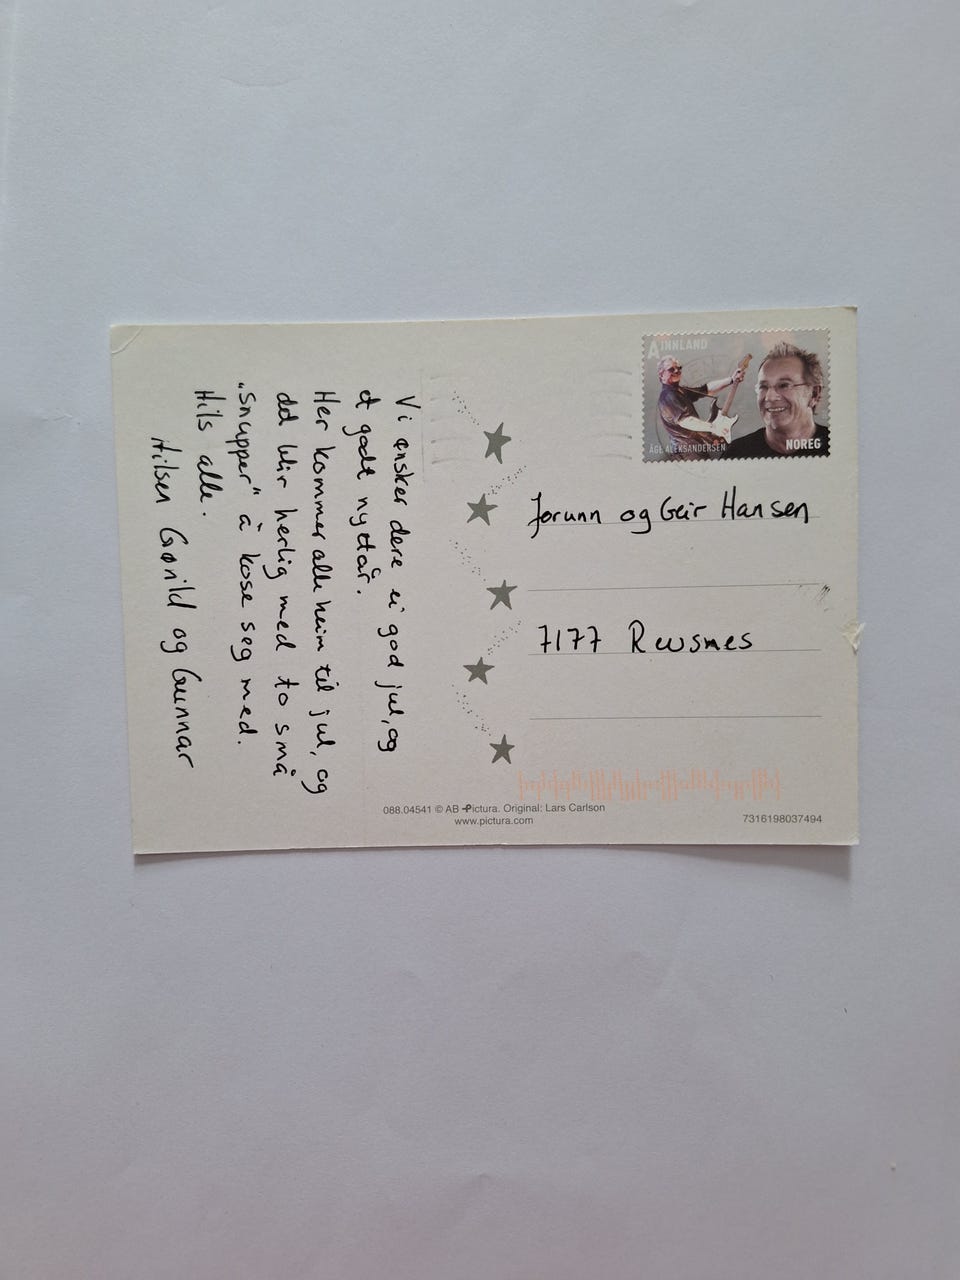 Vi ønsker dere ei god jul, og
et godt nyttår.
Her kommer alle heim til jul, og
det blir herlig med to små
"Snupper" å kose seg med.
Hils alle.
Hilsen Gørild og Gunnar
A INNLAND
ÅGE ALEKSANDERSEN
NOREG
Jorunn og Geir Hansen
7177 Revsnes
088.04541 © AB Pictura. Original: Lars Carlson
www.pictura.com
7316198037494